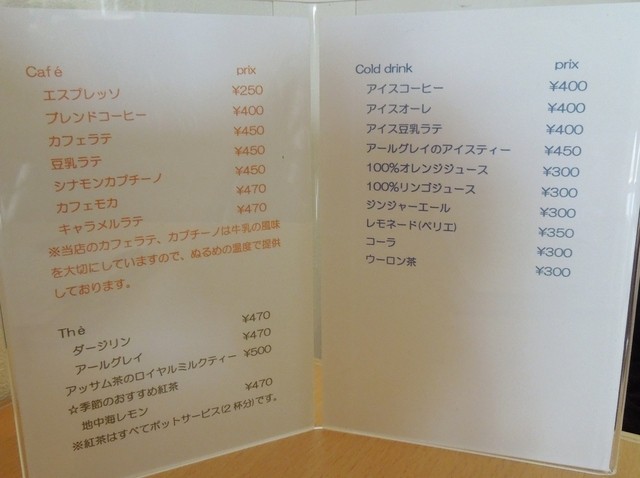 Café prix
エスプレッソ ¥250
ブレンドコーヒー ¥400
カフェラテ ¥450
豆乳ラテ ¥450
シナモンカプチーノ ¥450
カフェモカ ¥470
キャラメルラテ ¥470
※当店のカフェラテ、カプチーノは牛乳の風味
を大切にしていますので、ぬるめの温度で提供
しております。
Thè
ダージリン ¥470
アールグレイ ¥470
アッサム茶のロイヤルミルクティー ¥500
☆季節のおすすめ紅茶
地中海レモン ¥470
※紅茶はすべてポットサービス(2杯分)です。
Cold drink prix
アイスコーヒー ¥400
アイスオーレ ¥400
アイス豆乳ラテ ¥400
アールグレイのアイスティー ¥450
100%オレンジジュース ¥300
100%リンゴジュース ¥300
ジンジャーエール ¥300
レモネード(ペリエ) ¥350
コーラ ¥300
ウーロン茶 ¥300